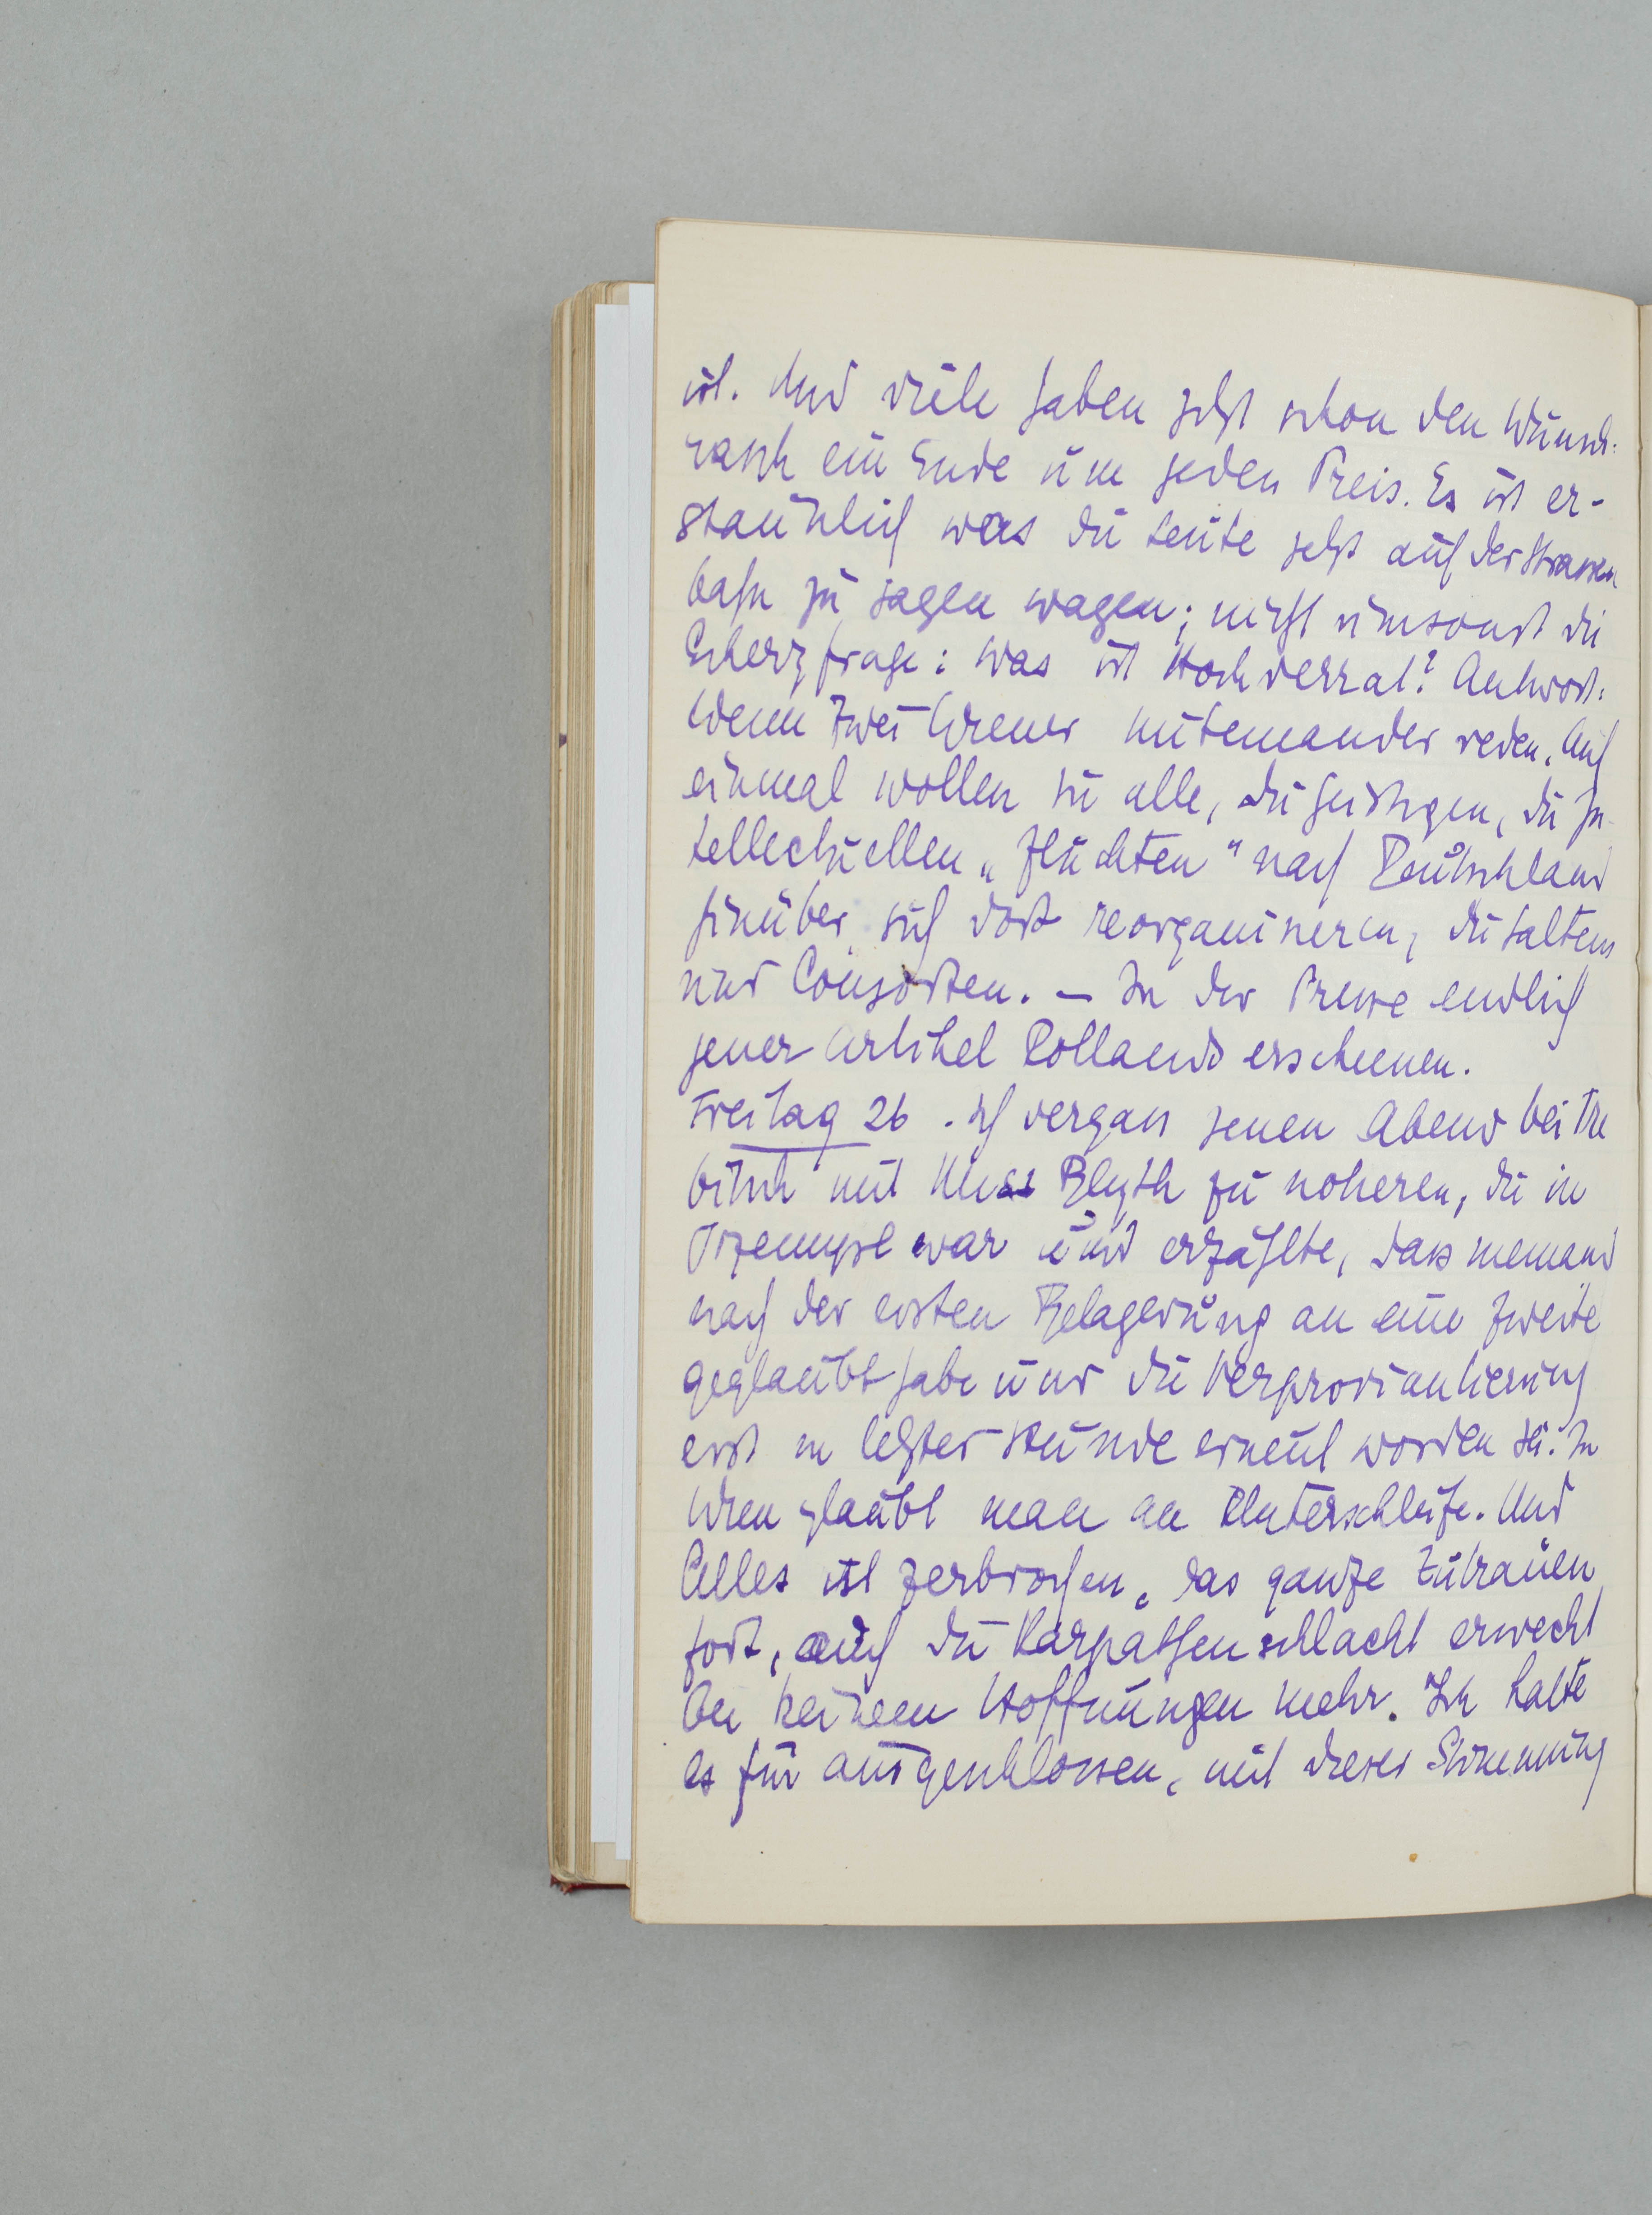 ist. Und viele haben jetzt schon den Wunsch:
rasch ein Ende um jeden Preis. Es ist er-
staunlich was die Leute jetzt auf der Strassen
bahn zu sagen wagen; nicht umsonst die
Scherzfrage: Was ist Hochverrat? Antwort:
Wenn zwei Wiener miteinander reden. Auf
einmal wollen sie alle, die Geistigen, die In-
tellectuellen „flüchten" nach Deutschland
hinüber, sich dort reorganisieren, die Saltens
und Consorten. – In der Presse endlich
jener Artikel Rollands erschienen.
Freitag 26. Ich vergass jenen Abend bei Tre
bitsch mit Miss Blyth zu notieren, die in
Przemysl war und erzählte, dass niemand
nach der ersten Belagerung an eine zweite
geglaubt habe und die Verproviantierung
erst in letzter Stunde erneut worden sei. In
Wien glaubt man an Unterschleife. Und
Alles ist zerbrochen, das ganze Zutrauen
fort, auch die Karpathenschlacht erweckt
bei keinem Hoffnungen mehr. Ich halte
es für ausgeschlossen, mit dieser Stimmung